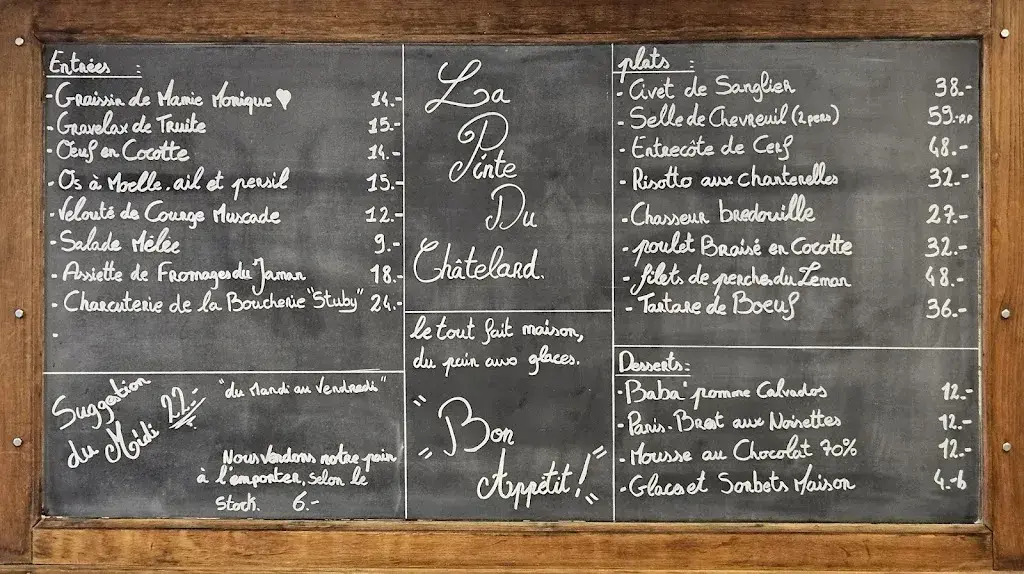 Entrées :
- Graissin de Mamie Monique ♥ 14.-
- Gravelax de Truite 15.-
- Œuf en Cocotte 14.-
- Os à Moelle, ail et persil 15.-
- Velouté de Courge Muscade 12.-
- Salade Mêlée 9.-
- Assiette de Fromages du Jaman 18.-
- Charcuterie de la Boucherie "Stuby" 24.-
-
Suggestion
du Midi 22.-
"du Mardi au Vendredi"
Nous Vendons notre pain
à l'emporter, selon le
Stock. 6.-
La
Pinte
Du
Châtelard.
le tout fait maison,
du pain aux glaces.
"Bon
Appétit!"
plats :
- Civet de Sanglier 38.-
- Selle de Chevreuil (2 pers) 59.-p.p
- Entrecôte de Cerf 48.-
- Risotto aux chanterelles 32.-
- Chasseur bredouille 27.-
- poulet Braisé en Cocotte 32.-
- filets de perches du Leman 48.-
- Tartare de Boeuf 36.-
Desserts :
- "Baba" pomme Calvados 12.-
- Paris-Brest aux Noisettes 12.-
- Mousse au Chocolat 70% 12.-
- Glaces et Sorbets Maison 4.-b